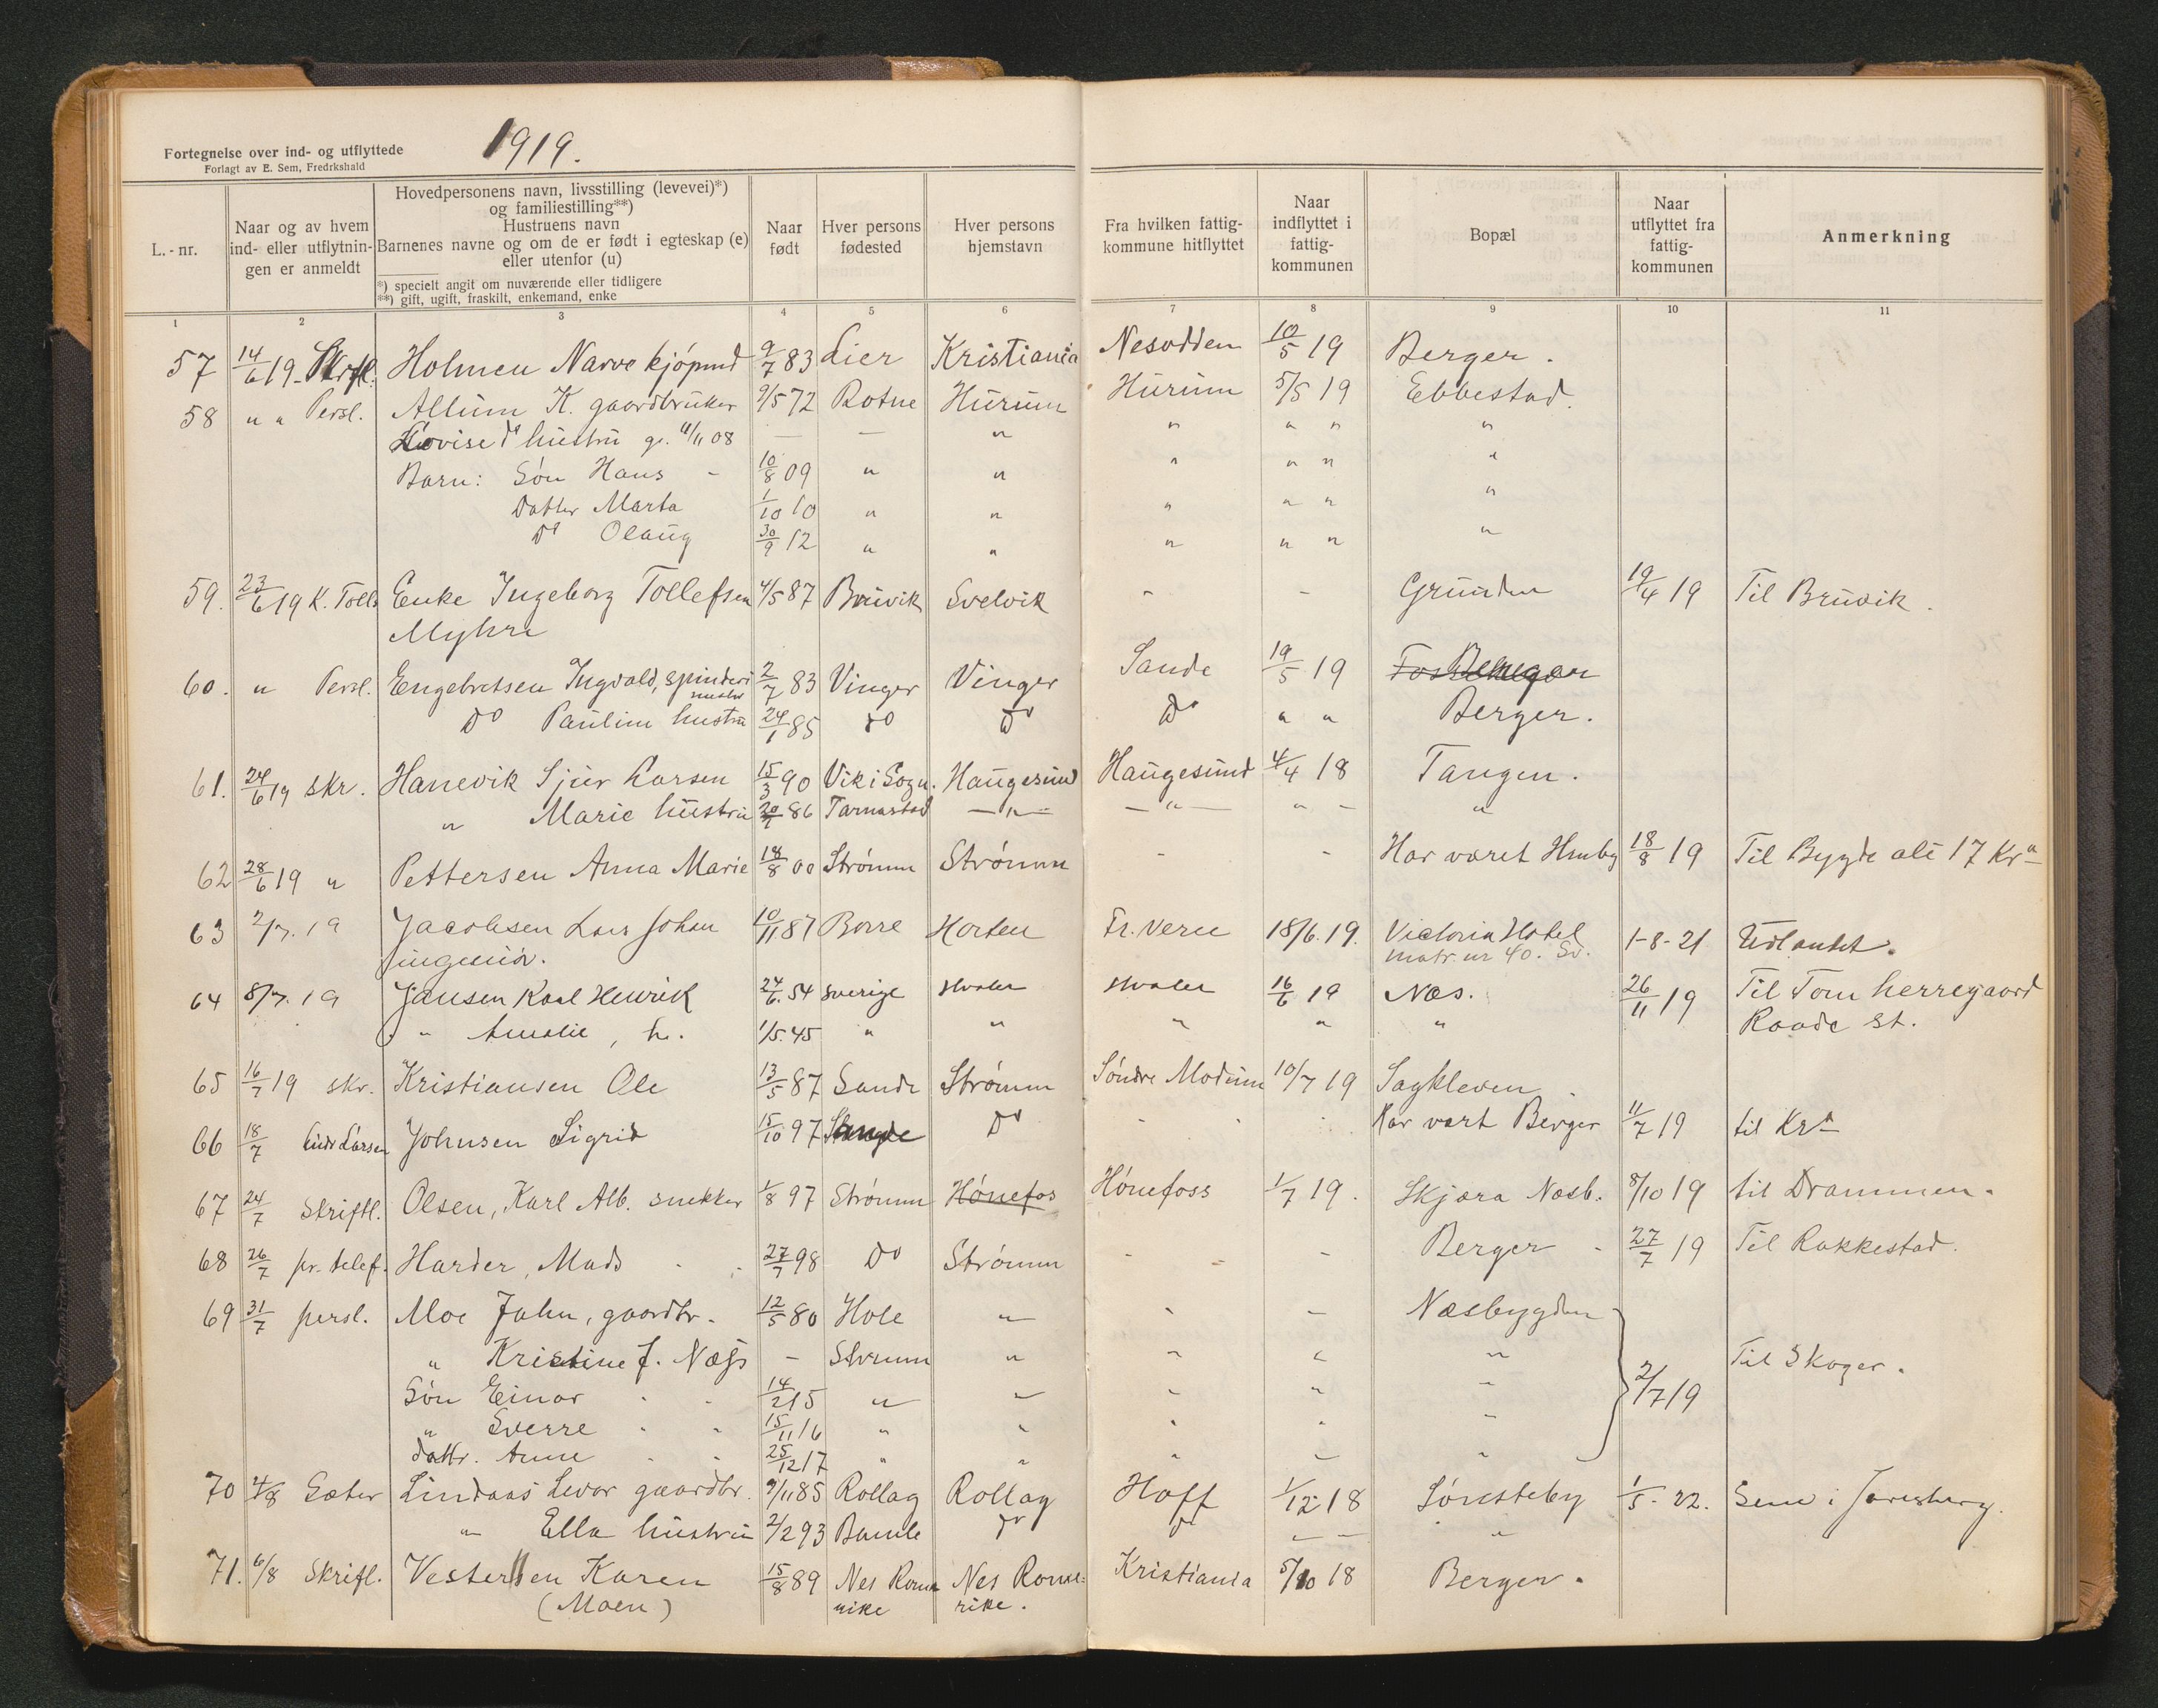 1919.
Fortegnelse over ind- og utflyttede
Forlagt av E. Sem, Fredrkshald
L.-nr.
Naar og av hvem ind- eller utflytningen er anmeldt
Hovedpersonens navn, livsstilling (levevei)*)
og familiestilling**)
Hustruens navn
Barnenes navne og om de er født i egteskap (e)
eller utenfor (u)
*) specielt angit om nuværende eller tidligere
**) gift, ugift, fraskilt, enkemand, enke
Naar født
Hver persons fødested
Hver persons hjemstavn
Fra hvilken fattig-kommune hitflyttet
Naar indflyttet i fattig-kommunen
Bopæl
Naar utflyttet fra fattig-kommunen
Anmerkning
1 2 3 4 5 6 7 8 9 10 11
57 14/6 19 Skrftl. Holmen Narve kjøpmd 9/7 83 Lier Kristiania Nesodden 10/5 19 Berger.
58 " " Persl. Allum K. gaardbruker 9/5 72 Botne Hurum Hurum 5/5 19 Ebbestad.
Lovise do hustru g. 11/11 08 — — " " " " "
Barn: Søn Hans - 10/8 09 " " " " " "
Datter Marta 1/10 10 " " " " " "
Do Olaug 30/9 12 " " " " " "
59. 23/6 19 K. Tolls Enke Ingeborg Tollefsen 4/5 87 Bruvik Svelvik - - Grunden 19/4 19 Til Bruvik.
Myhre
60. " Persl. Engebretsen Ingvald, spinderi 2/7 83 Vinger Vinger Sande 19/5 19
mester
Do Pauline hustru 24/1 85 Do Do Do " " Berger.
61. 24/6 19 skr. Hanevik Sjur Larsen 15/3 90 Vik i Sogn. Haugesund Haugesund 4/4 18 Tangen.
" Marie hustru 86 Tarnastad —"— —"— " — "
62 28/6 19 " Pettersen Anna Marie 18/8 00 Strømm Strømm - - Har været 18/8 19 Til Bygdø alé 17 Kra
63 2/7. 19 Jacobsen Lars Johan 10/11 87 Borre Horten Fr. Vern 18/6. 19. Victoria Hotel 1-8-21 Utlandet.
ingeniør. matr. nr 40. Sv.
64 8/7. 19 Jansen Karl Henrik 24/6. 54 Sverige Hvaler Hvaler 16/6 19 Næs. 26/11 19 Til Tom herregaard
" Amalie, h. 1/5. 45 " " " " " Raade st.
65 16/7 19 skr. Kristiansen Ole 13/5 87 Sande Strømm Søndre Modum 10/7 19 Sagkleven.
66 18/7 Larsen Johnsen Sigrid 15/10 97 Do - - Har vært Berger 11/7 19 til Kra
67 24/7 Skriftl. Olsen, Karl Alb. snekker 1/8 97 Strømm Hønefos Hønefoss 1/7 19. Skjæra Næsb. 8/10 19 til Drammen.
68 26/7 pr. telef. Harder, Mads 27/7 98 Do Strømm - - Berger 27/7 19 Til Rakkestad.
69 31/7 persl. Moe John, gaardbr. 12/5 80 Hole " - - Næsbygden
" Kristine f. Næss - Strømm " " " " 2/7 19 Til Skoger.
Søn Einar 14/2 15 " " " " "
" Sverre 15/11 16 " " " " "
dattr. Anne 25/12 17 " " " " "
70 4/8 Sæter Lindaas Levor gaardbr. 9/11 85 Rollag Rollag Hoff 1/12 18 Sønsteby 1/5-22. Sem i Jarlsberg.
" Ella hustru 2/2 93 Bamle Do Do — — "
71. 6/8 Skriftl. Vestersen Karen 15/8 89 Nes Rome Nes Rome= Kristiania 5/10 18 Berger.
(Moen) rike rike.